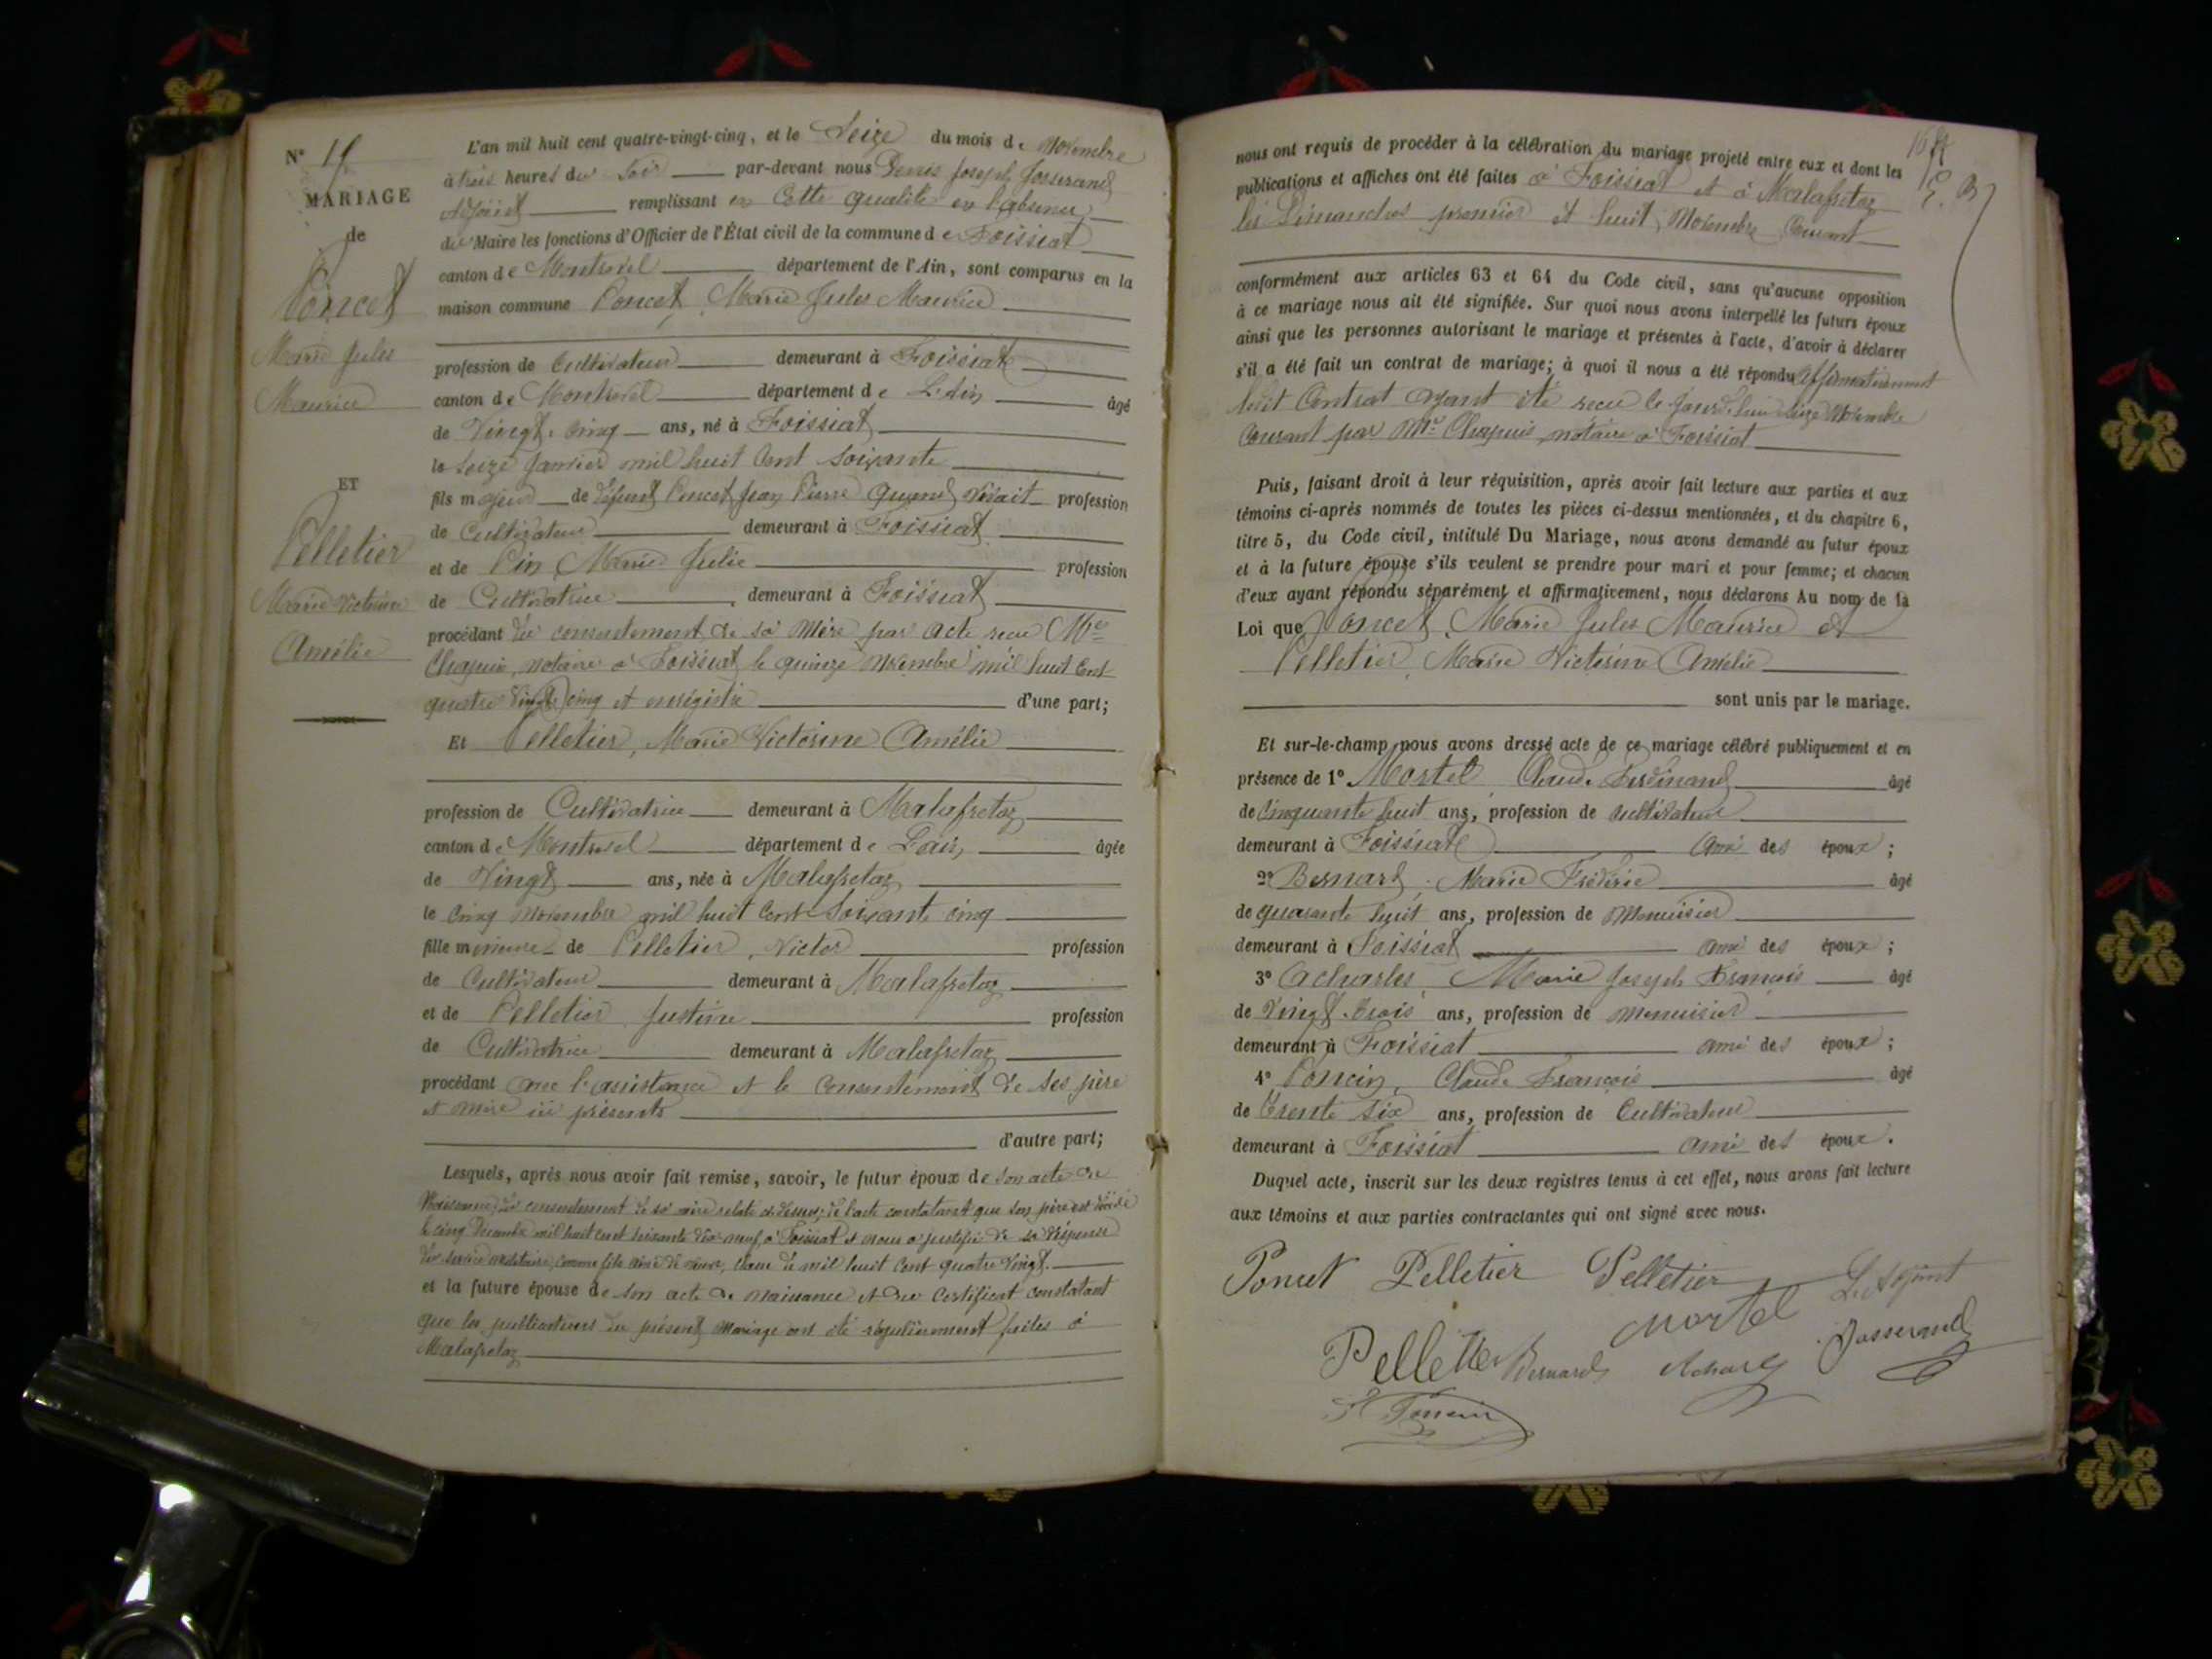 N° 19
MARIAGE
de
Poncet
Marie Jules
Maurice
ET
Pelletier
Marie Victorine
Amélie
L'an mil huit cent quatre-vingt-cinq, et le Seize du mois de Novembre
à trois heures du Soir par-devant nous Denis Joseph Josserand
Adjoint remplissant en Cette qualité en l'absence
du Maire les fonctions d'Officier de l'État civil de la commune de Foissiat
canton de Montrevel département de l'Ain, sont comparus en la
maison commune Poncet, Marie Jules Maurice
profession de Cultivateur demeurant à Foissiat
canton de Montrevel département de L'Ain âgé
de Vingt-cinq ans, né à Foissiat
le Seize Janvier mil huit Cent Soixante
fils majeur de défunt Poncet Jean Pierre quand vivait profession
de Cultivateur demeurant à Foissiat
et de Pin Marie Julie profession
de Cultivatrice demeurant à Foissiat
procédant du consentement de sa mère par acte reçu Me
Chapuis, notaire à Foissiat le quinze Novembre mil huit Cent
quatre Vingt cinq et enregistré d'une part;
Et Pelletier, Marie Victorine Amélie
profession de Cultivatrice demeurant à Malafretaz
canton de Montrevel département de L'ain, âgée
de Vingt ans, née à Malafretaz
le Cinq Novembre mil huit Cent Soixante cinq
fille mineure de Pelletier, Victor profession
de Cultivateur demeurant à Malafretaz
et de Pelletier Justine profession
de Cultivatrice demeurant à Malafretaz
procédant avec l'assistance et le Consentement de ses père
et mère ici présents
d'autre part;
Lesquels, après nous avoir fait remise, savoir, le futur époux de son acte de
Naissance; du consentement de sa mère relaté ci-dessus; de l'acte constatant que son père est décédé
le cinq Decembre mil huit cent soixante dix neuf, à Foissiat et nous a justifié de sa dispense
du service militaire, comme fils aîné de veuve, classe de mil huit Cent quatre Vingt.
et la future épouse de son acte de naissance et du Certificat constatant
que les publications du présent Mariage ont été régulièrement faites à
Malafretaz
nous ont requis de procéder à la célébration du mariage projeté entre eux et dont les
publications et affiches ont été faites à Foissiat et à Malafretaz
les Dimanches premier et huit Novembre Courant
conformément aux articles 63 et 64 du Code civil, sans qu'aucune opposition
à ce mariage nous ait été signifiée. Sur quoi nous avons interpellé les futurs époux
ainsi que les personnes autorisant le mariage et présentes à l'acte, d'avoir à déclarer
s'il a été fait un contrat de mariage; à quoi il nous a été répondu affirmativement
ledit Contrat ayant été reçu le jourd'hui seize Novembre
Courant par Me Chapuis notaire à Foissiat
Puis, faisant droit à leur réquisition, après avoir fait lecture aux parties et aux
témoins ci-après nommés de toutes les pièces ci-dessus mentionnées, et du chapitre 6,
titre 5, du Code civil, intitulé Du Mariage, nous avons demandé au futur époux
et à la future épouse s'ils veulent se prendre pour mari et pour femme; et chacun
d'eux ayant répondu séparément et affirmativement, nous déclarons Au nom de la
Loi que Poncet, Marie Jules Maurice et
Pelletier, Marie Victorine Amélie
sont unis par le mariage.
Et sur-le-champ nous avons dressé acte de ce mariage célébré publiquement et en
présence de 1° Mortel Claude Ferdinand âgé
de Cinquante huit ans, profession de cultivateur
demeurant à Foissiat ami des époux;
2° Bernard, Marie Frédéric âgé
de quarante huit ans, profession de Menuisier
demeurant à Foissiat ami des époux;
3° Acharles, Marie Joseph François âgé
de Vingt-trois ans, profession de menuisier
demeurant à Foissiat ami des époux;
4° Poncin, Claude François âgé
de trente six ans, profession de Cultivateur
demeurant à Foissiat ami des époux.
Duquel acte, inscrit sur les deux registres tenus à cet effet, nous avons fait lecture
aux témoins et aux parties contractantes qui ont signé avec nous.
Poncet Pelletier Pelletier L'Adjoint
Mortel Josserand
Pelletier Bernard
Poncin